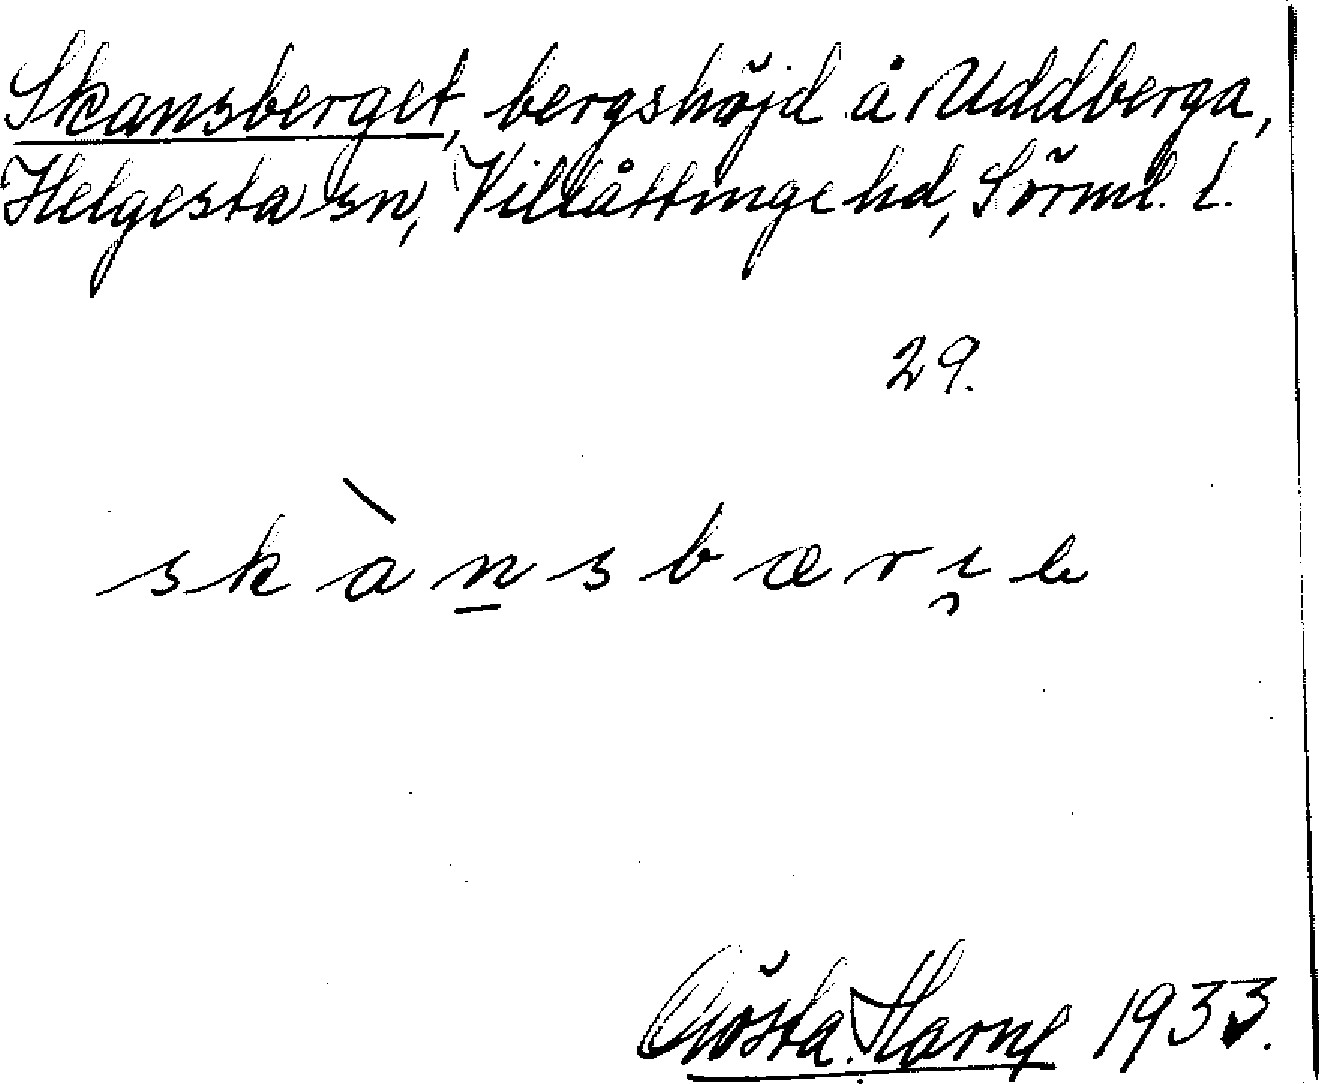 Skansberget, bergshöjd å Uddberga,
Helgesta sn, Villåttinge hd, Sörml. l.
29.
skànsbærı̯t
Gösta Harne 1933.